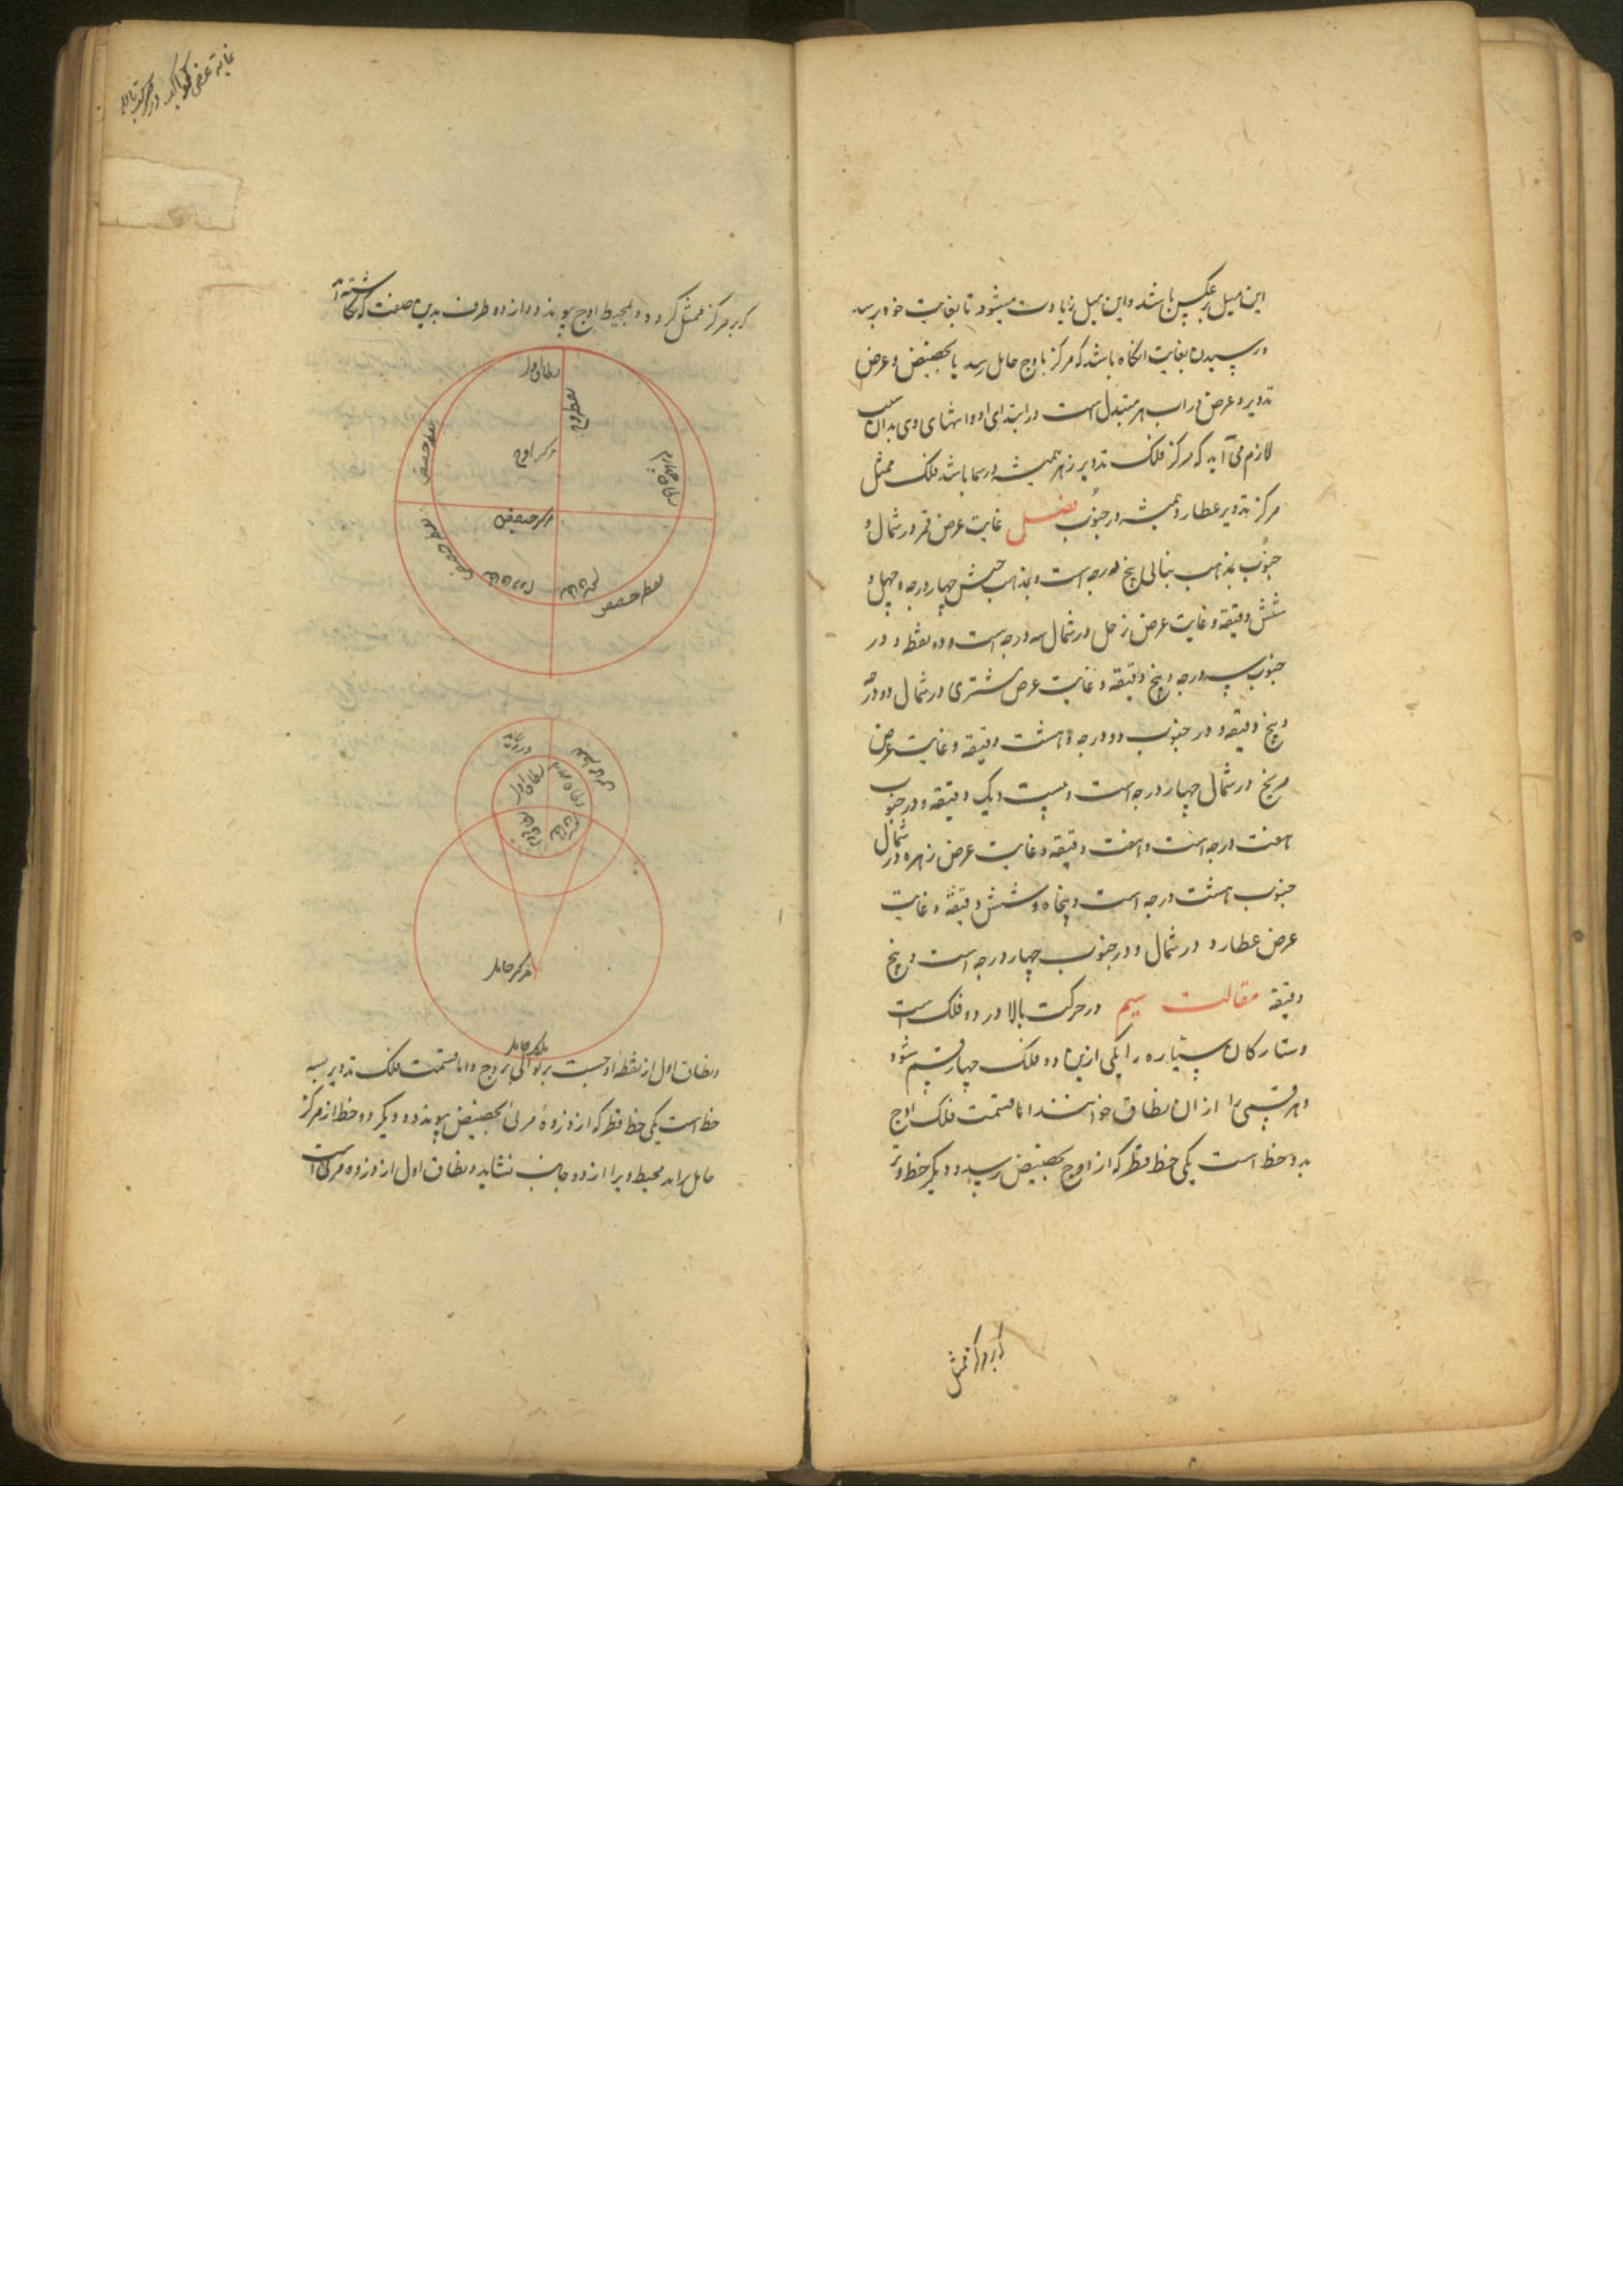 این میل برعکس باشد و این میل زیادت میشود تا بغایت خود برسد
و رسیدن بغایت انگاه باشد که مرکز باوج حامل رسد یا بحضیض و عرض
تدویر و عرض وراب هر متبدل است در ابتدای او و انتهای وی بدان سبب
لازم می آید که مرکز فلک تدویر زهره همیشه در شمال باشد فلک ممثل
مرکز تدویر عطارد همیشه در جنوب فصل غایت عرض قمر در شمال و
جنوب بمذهب بتانی پنج درجه است و بمذهب حبش چهار درجه و چهل و
شش دقیقه و غایت عرض زحل در شمال سه درجه است و دو نقطه و در
جنوب سه درجه و پنج دقیقه و غایت عرض مشتری در شمال دو درجه
و پنج دقیقه و در جنوب دو درجه و هشت دقیقه و غایت عرض
مریخ در شمال چهار درجه است و بیست و یک دقیقه و در جنوب
هفت درجه است و هفت دقیقه و غایت عرض زهره در شمال
جنوب هشت درجه است و پنجاه و شش دقیقه و غایت
عرض عطارد در شمال و در جنوب چهار درجه است و پنج
دقیقه مقالت سیم در حرکت بالا در دو فلک است
و ستارکان سیاره را یکی ازین دو فلک چهار قسم شود
و هر قسمی را از ان نطاق خوانند اما قسمت فلک اوج
بدو خط است یکی خط قطر که از اوج بحضیض رسید و دیگر خط وتر
که بر مرکز ممثل
غایة عرض کواکب در
که بر مرکز ممثل کردد و بمحیط اوج پیوندد و از دو طرف بدین صفت که نکاشته آ
نطاق اول
نقطه اوج
مرکز اوج
نطاق چهارم
مرکز حضیض
نطاق دوم
نقطه حضیض
نطاق اول
مرکز حامل
فلک حامل
و نطاق اول از نقطه اوجست بر توالی بروج و اما قسمت فلک تدویر بسه
خط است یکی خط قطر که از ذروهٔ مرئی بحضیض پیوندد و دیگر دو خط از مرکز
حامل براید محیط ویرا از دو جانب نشاید و نطاق اول از ذروه مرئی است